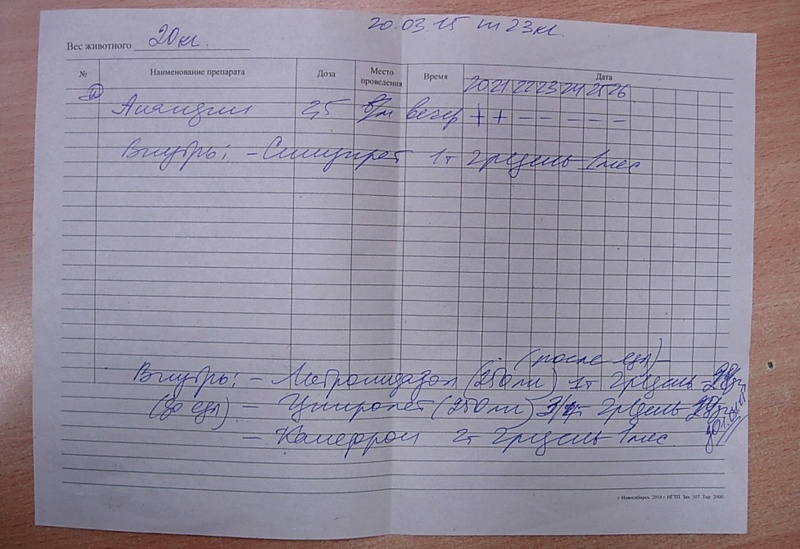 20.03.15 m 23кг.
Вес животного 20кг.
№ Наименование препарата Доза Место проведения Время Дата
20 21 22 23 24 25 26
Анандин 2,5 в/м вечер + + – – – – –
Внутрь: – Синупрет 1т 2р/день 1мес
(после еды)
Внутрь: – Метронидазол (250мг) 1т 2р/день
(до еды) – Ципролет (250мг) 3/4т 2р/день
– Канефрон 2т 2р/день 1мес.
г. Новосибирск, 2014 г. НГТП. Зак. 307. Тир. 2000.